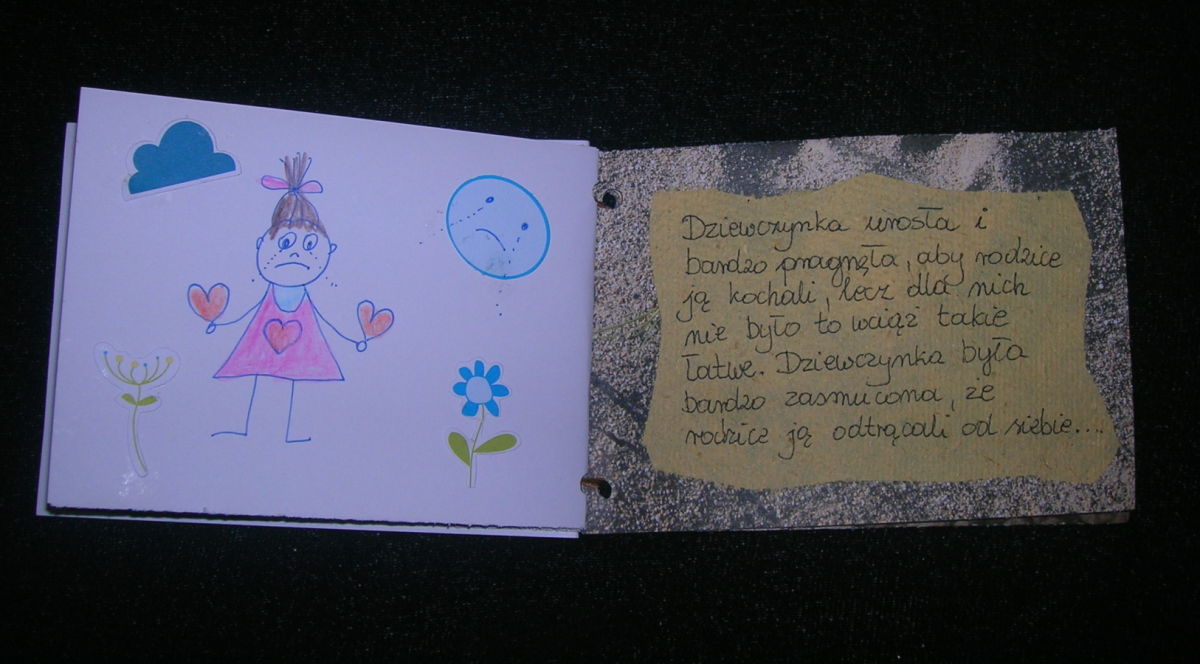 Dziewczynka urosła i
bardzo pragnęła, aby rodzice
ją kochali, lecz dla nich
nie było to wciąż takie
łatwe. Dziewczynka była
bardzo zasmucona, że
rodzice ją odtrącali od siebie....